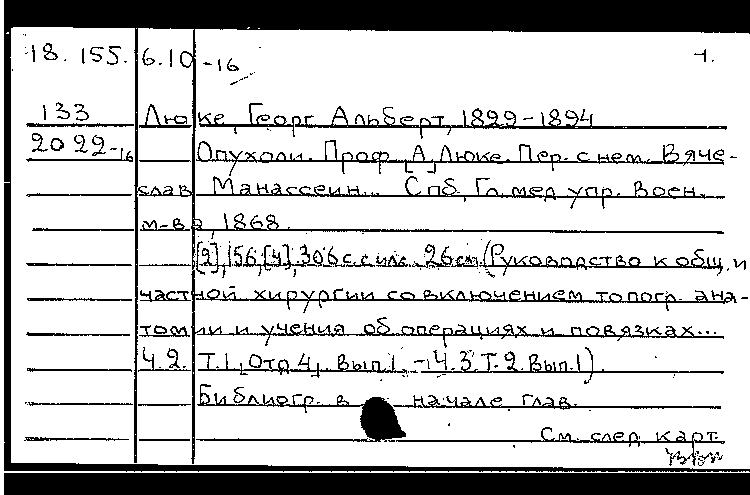 18.155.6.10-16 1.
133 Люке, Георг Альберт, 1829-1894
2022-16 Опухоли. Проф. А. Люке. Пер. с нем. Вяче-
слав Манассеин... Спб, Гл. мед. упр. Воен.
м-ва, 1868.
[2], 156, [4], 306 с. с илл. 26 см. (Руководство к общ. и
частной хирургии со включением топогр. ана-
томии и учения об операциях и повязках...
Ч.2. Т.1, Отд.4, Вып.1. - Ч.3. Т.2. Вып.1).
Библиогр. в начале глав.
См. след. карт.